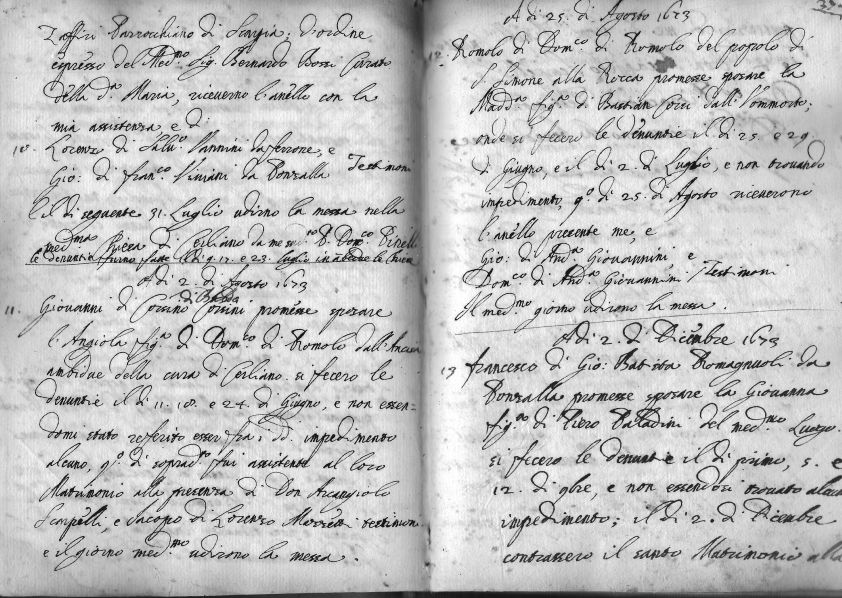 Parrocchiano di Scarpia; d'ordine
espresso del Med.mo Sig. Bernardo Rossi Curato
della d.a Maria, riceverno l'anello con la
mia assistenza e di
10. Lorenzo di Salv. Vannini da ferrone, e
Gio: di Fran.co Viviani da Ponzalla Testimoni
Il di seguente 31. Luglio udirno la messa nella
med.ma di Cerliano da D. Dom.co
le denuntie furno fatte 17. e 23. Luglio in
A di 2. di Agosto 1673
di
11. Giovanni di Corsino Corsini promesse sposare
l'Angiola fig.a di Dom.co di Romolo dall'
ambidue della cura di Cerliano. si fecero le
denuntie il di 11. 18. e 24. di Giugno, e non essen=
domi stato referito esser fra i dd. impedimento
alcuno, q.o di soprad.o fui assistente al loro
Matrimonio alla presenza di Don Arcangiolo
Scarpelli, e Iacopo di Lorenzo testimoni
e il giorno med.mo udirono la messa.
A di 25. di Agosto 1673
12. Romolo di Dom.co di Romolo del popolo di
S. Simone alla Rocca promesse sposare la
Madd.a fig.a di Bastian Corsi dall'
onde si fecero le denuntie il di 25. e 29.
di Giugno, e il di 2. di Luglio, e non trovando
impedimento, q.o di 25. di Agosto riceverono
l'anello presente me, e
Gio: di And.a Giovannini e
Dom.co di And.a Giovannini Testimoni
Il med.mo giorno udirono la messa.
A di 2. di Dicembre 1673
13 Francesco di Gio: Batista Romagnuoli da
Ponzalla promesse sposare la Giovanna
fig.a di Piero Palladini del med.mo Luogo.
si fecero le denuntie il di primo, 5. e
12. di 9bre, e non essendosi trovato alcun
impedimento; il di 2. di Dicembre
contrassero il santo Matrimonio alla